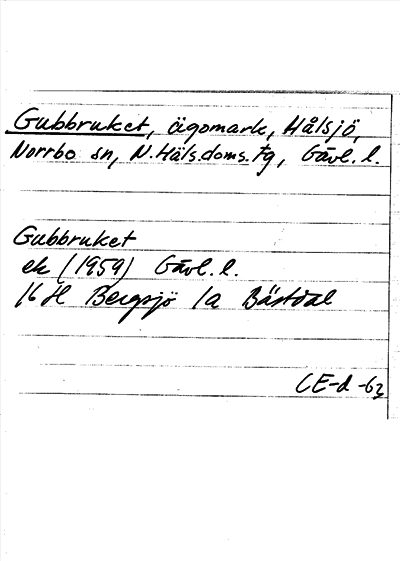 Gubbruket, ägomark, Hålsjö,
Norrbo sn, N.Häls.doms.fg, Gävl. l.
Gubbruket
ek (1959) Gävl. l.
16 H Bergsjö 1a Bästdal
CE-d -63